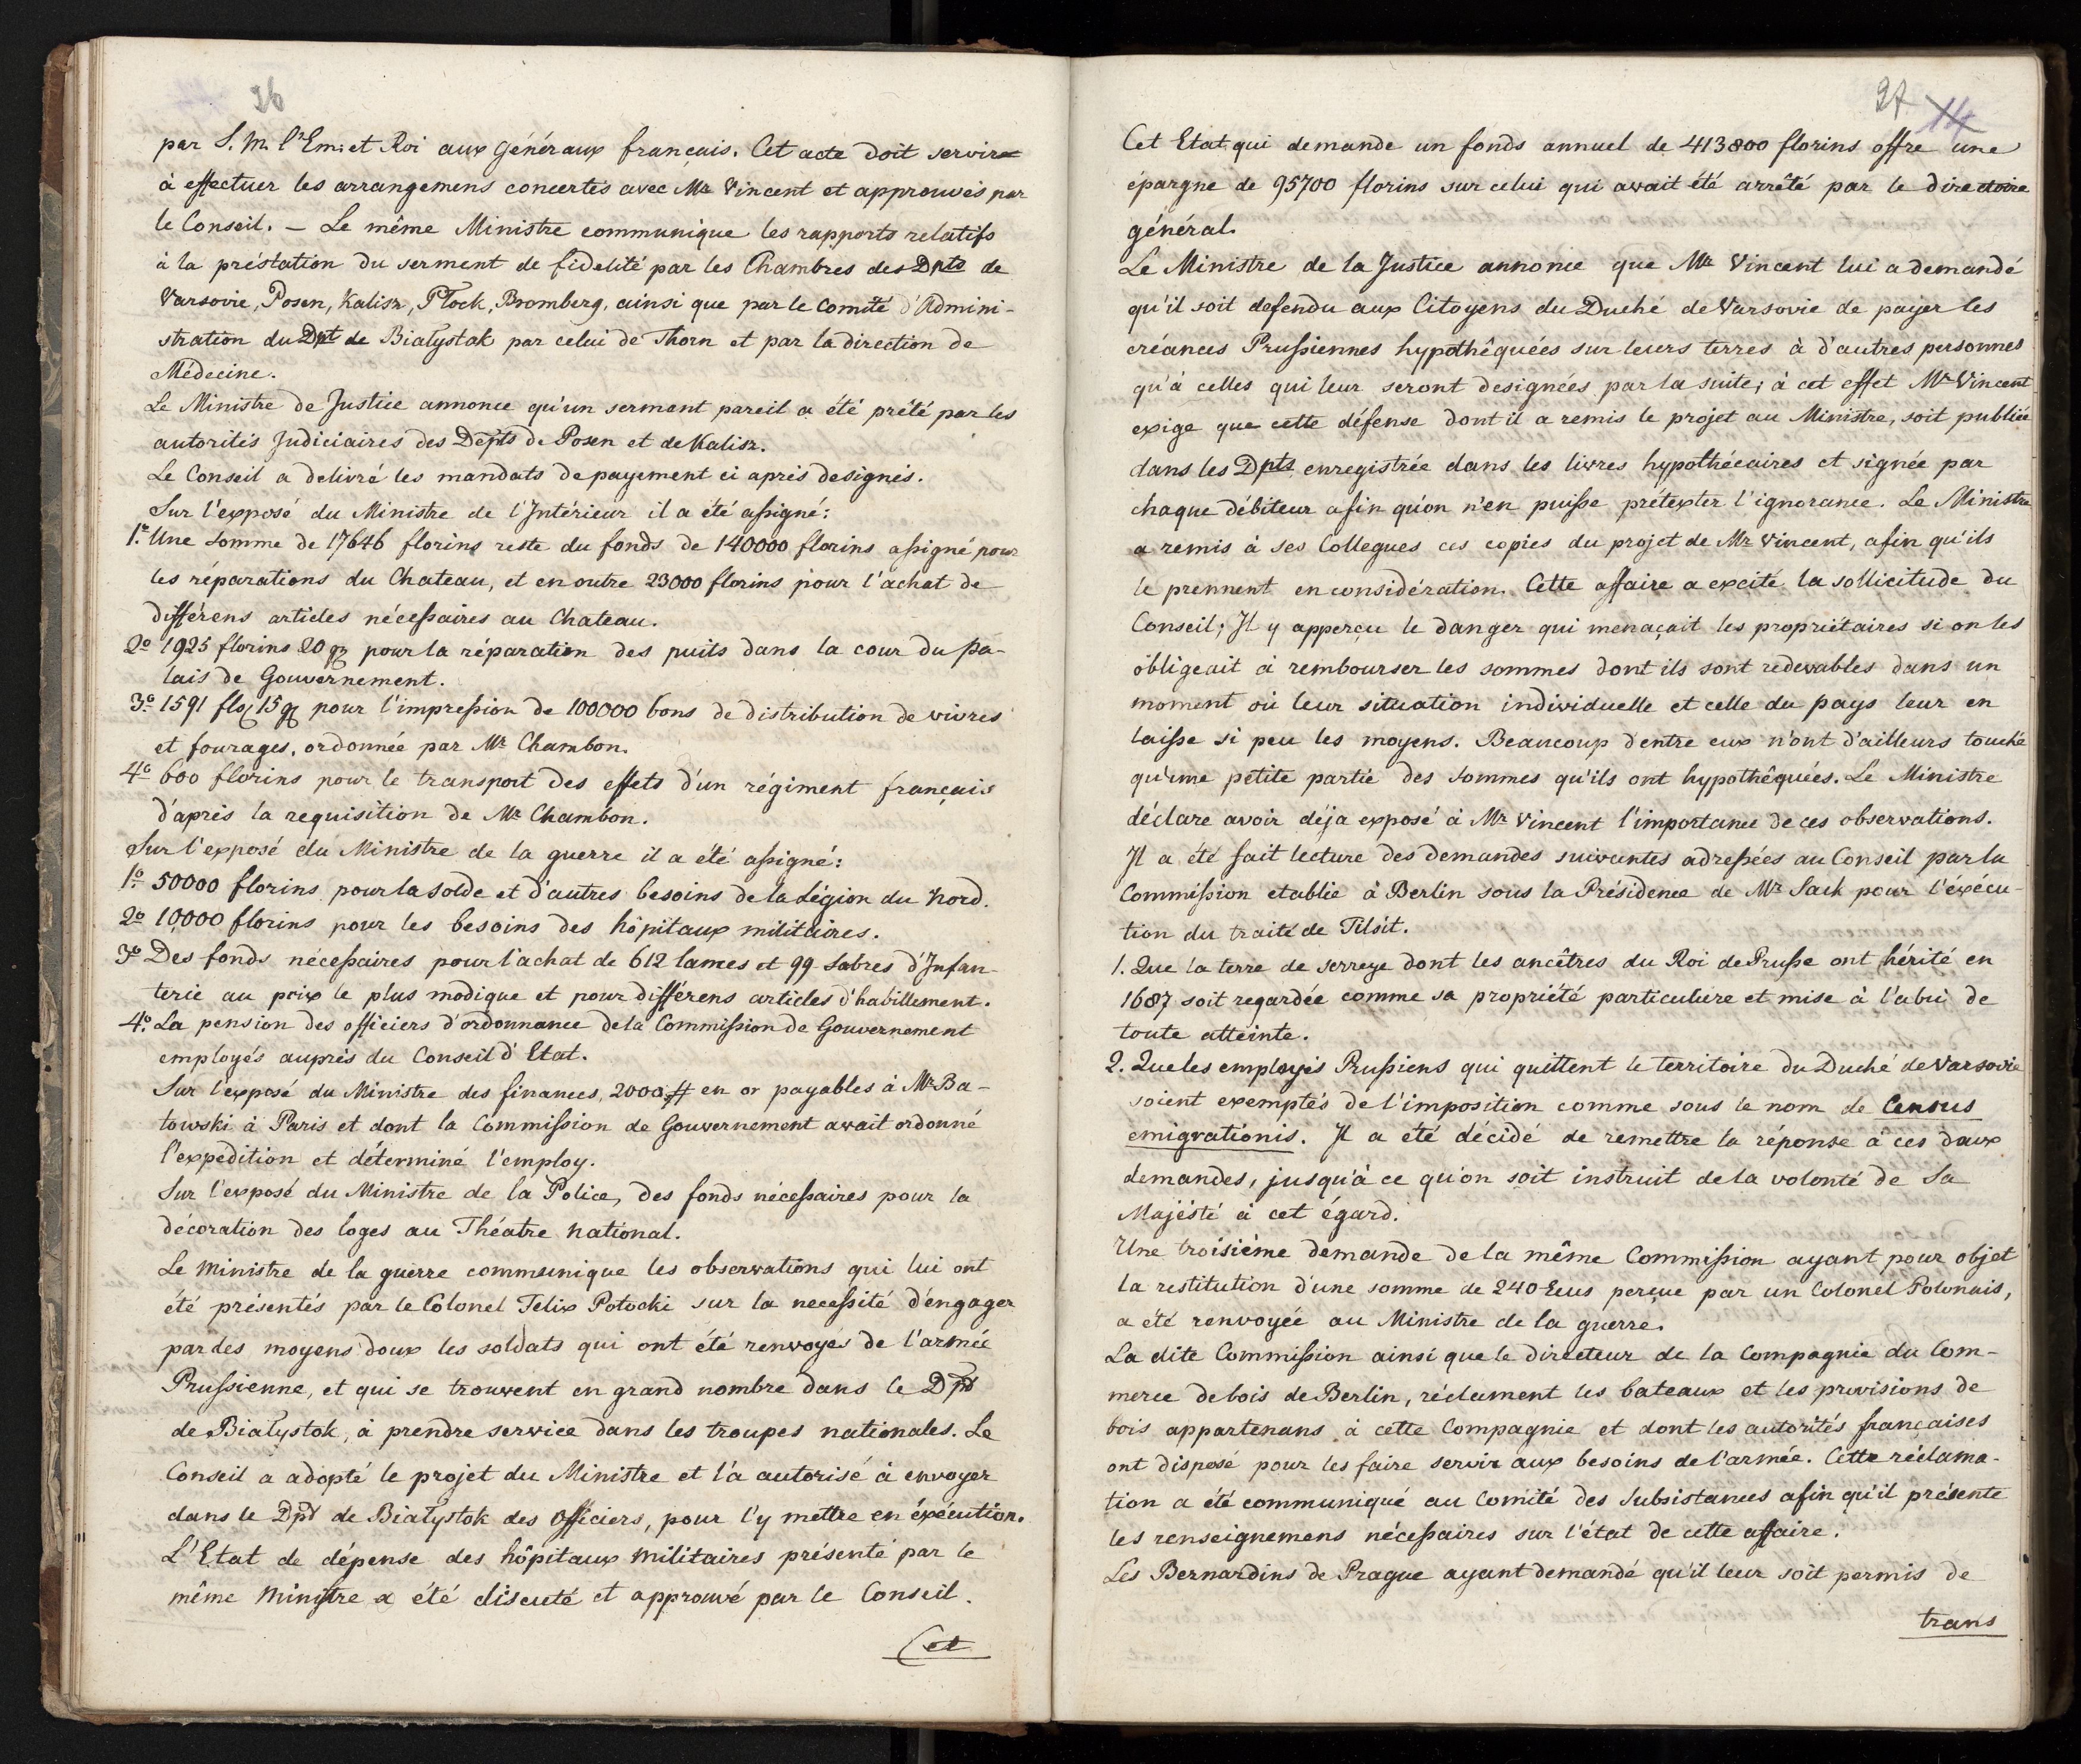 26
par S. M. l'Em: et Roi aux Généraux francais. Cet acte doit servir
à effectuer les arrangemens concertés avec Mr Vincent et approuvés par
le Conseil. – Le même Ministre communique les rapports relatifs
à la préstation du serment de fidelité par les Chambres des Dpts de
Varsovie, Posen, Kalisz, Płock, Bromberg, ainsi que par le Comité d'Admini-
stration du Dpt de Białystok par celui de Thorn et par la direction de
Médecine.
Le Ministre de Justice annonce qu'un serment pareil a été prêté par les
autorités Judiciaires des Depts de Posen et de Kalisz.
Le Conseil a delivré les mandats de payement ci après designés.
Sur l'exposé du Ministre de l'Intérieur il a été assigné:
1.º Une somme de 17646 florins reste du fonds de 140000 florins assigné pour
les réparations du Chateau, et en outre 23000 florins pour l'achat de
différens articles nécessaires au Chateau.
2º 1925 florins 20 gr pour la réparation des puits dans la cour du pa-
lais de Gouvernement.
3º 1591 flo, 15 gr pour l'impression de 100000 bons de distribution de vivres
et fourages, ordonnée par Mr Chambon.
4º 600 florins pour le transport des effets d'un régiment français
d'après la requisition de Mr Chambon.
Sur l'exposé du Ministre de la guerre il a été assigné:
1.º 50000 florins pour la solde et d'autres besoins de la Légion du Nord.
2º 10,000 florins pour les besoins des hôpitaux militaires.
3º Des fonds nécessaires pour l'achat de 612 lames et 99 Sabres d'Infan-
terie au prix le plus modique et pour différens articles d'habillement.
4.º La pension des officiers d'ordonnance de la Commission de Gouvernement
employés auprès du Conseil d'Etat.
Sur l'exposé du Ministre des finances, 2000 # en or payables à Mr Ba-
towski à Paris et dont la Commission de Gouvernement avait ordonné
l'expedition et déterminé l'employ.
Sur l'exposé du Ministre de la Police, des fonds nécessaires pour la
décoration des loges au Théatre National.
Le Ministre de la guerre communique les observations qui lui ont
été présentés par le Colonel Felix Potocki sur la necessité d'engager
par des moyens doux les soldats qui ont été renvoyés de l'armée
Prussienne, et qui se trouvent en grand nombre dans le Dpt
de Białystok, à prendre service dans les troupes nationales. Le
Conseil a adopté le projet du Ministre et l'a autorisé à envoyer
dans le Dpt de Białystok des officiers, pour l'y mettre en éxécution.
L'Etat de dépense des hôpitaux militaires présenté par le
même Ministre a été discuté et approuvé par le Conseil.
Cet
27 14
Cet Etat qui demande un fonds annuel de 413800 florins offre une
épargne de 95700 florins sur celui qui avait été arrêté par le directoire
général.
Le Ministre de la Justice annonce que Mr Vincent lui a demandé
qu'il soit defendu aux Citoyens du Duché de Varsovie de payer les
créances Prussiennes hypothêquées sur leurs terres à d'autres personnes
qu'à celles qui leur seront designées par la suite; à cet effet Mr Vincent
exige que cette défense dont il a remis le projet au Ministre, soit publiée
dans les Dpts enregistrée dans les livres hypothécaires et signée par
chaque débiteur afin qu'on n'en puisse prétexter l'ignorance. Le Ministre
a remis à ses Collegues ces copies du projet de Mr Vincent, afin qu'ils
le prennent en considération. Cette affaire a excité la sollicitude du
Conseil; Il y apperçu le danger qui menaçait les propriétaires si on les
obligeait à rembourser les sommes dont ils sont redevables dans un
moment où leur situation individuelle et celle du pays leur en
laisse si peu les moyens. Beaucoup d'entre eux n'ont d'ailleurs touché
qu'une petite partie des sommes qu'ils ont hypothêquées. Le Ministre
déclare avoir déja exposé à Mr Vincent l'importance de ces observations.
Il a été fait lecture des demandes suivantes adressées au Conseil par la
Commission etablie à Berlin sous la Présidence de Mr Sack pour l'éxécu-
tion du traité de Tilsit.
1. Que la terre de serreye dont les ancêtres du Roi de Prusse ont hérité en
1687 soit regardée comme sa propriété particuliere et mise à l'abri de
toute atteinte.
2. Que les employés Prussiens qui quittent le territoire du Duché de Varsovie
soient exemptés de l'imposition comme sous le nom de Census
emigrationis. Il a été décidé de remettre la réponse à ces deux
demandes, jusqu'à ce qu'on soit instruit de la volonté de Sa
Majésté à cet égard.
Une troisième demande de la même Commission ayant pour objet
la restitution d'une somme de 240 Ecus perçue par un Colonel Polonais,
a été renvoyée au Ministre de la guerre.
La dite Commission ainsi que le directeur de la Compagnie du Com-
merce de bois de Berlin, réclament les bateaux et les provisions de
bois appartenans à cette Compagnie et dont les autorités françaises
ont disposé pour les faire servir aux besoins de l'armée. Cette réclama-
tion a été communiqué au Comité des Subsistances afin qu'il présente
les renseignemens nécessaires sur l'état de cette affaire.
Les Bernardins de Prague ayant demandé qu'il leur soit permis de
trans